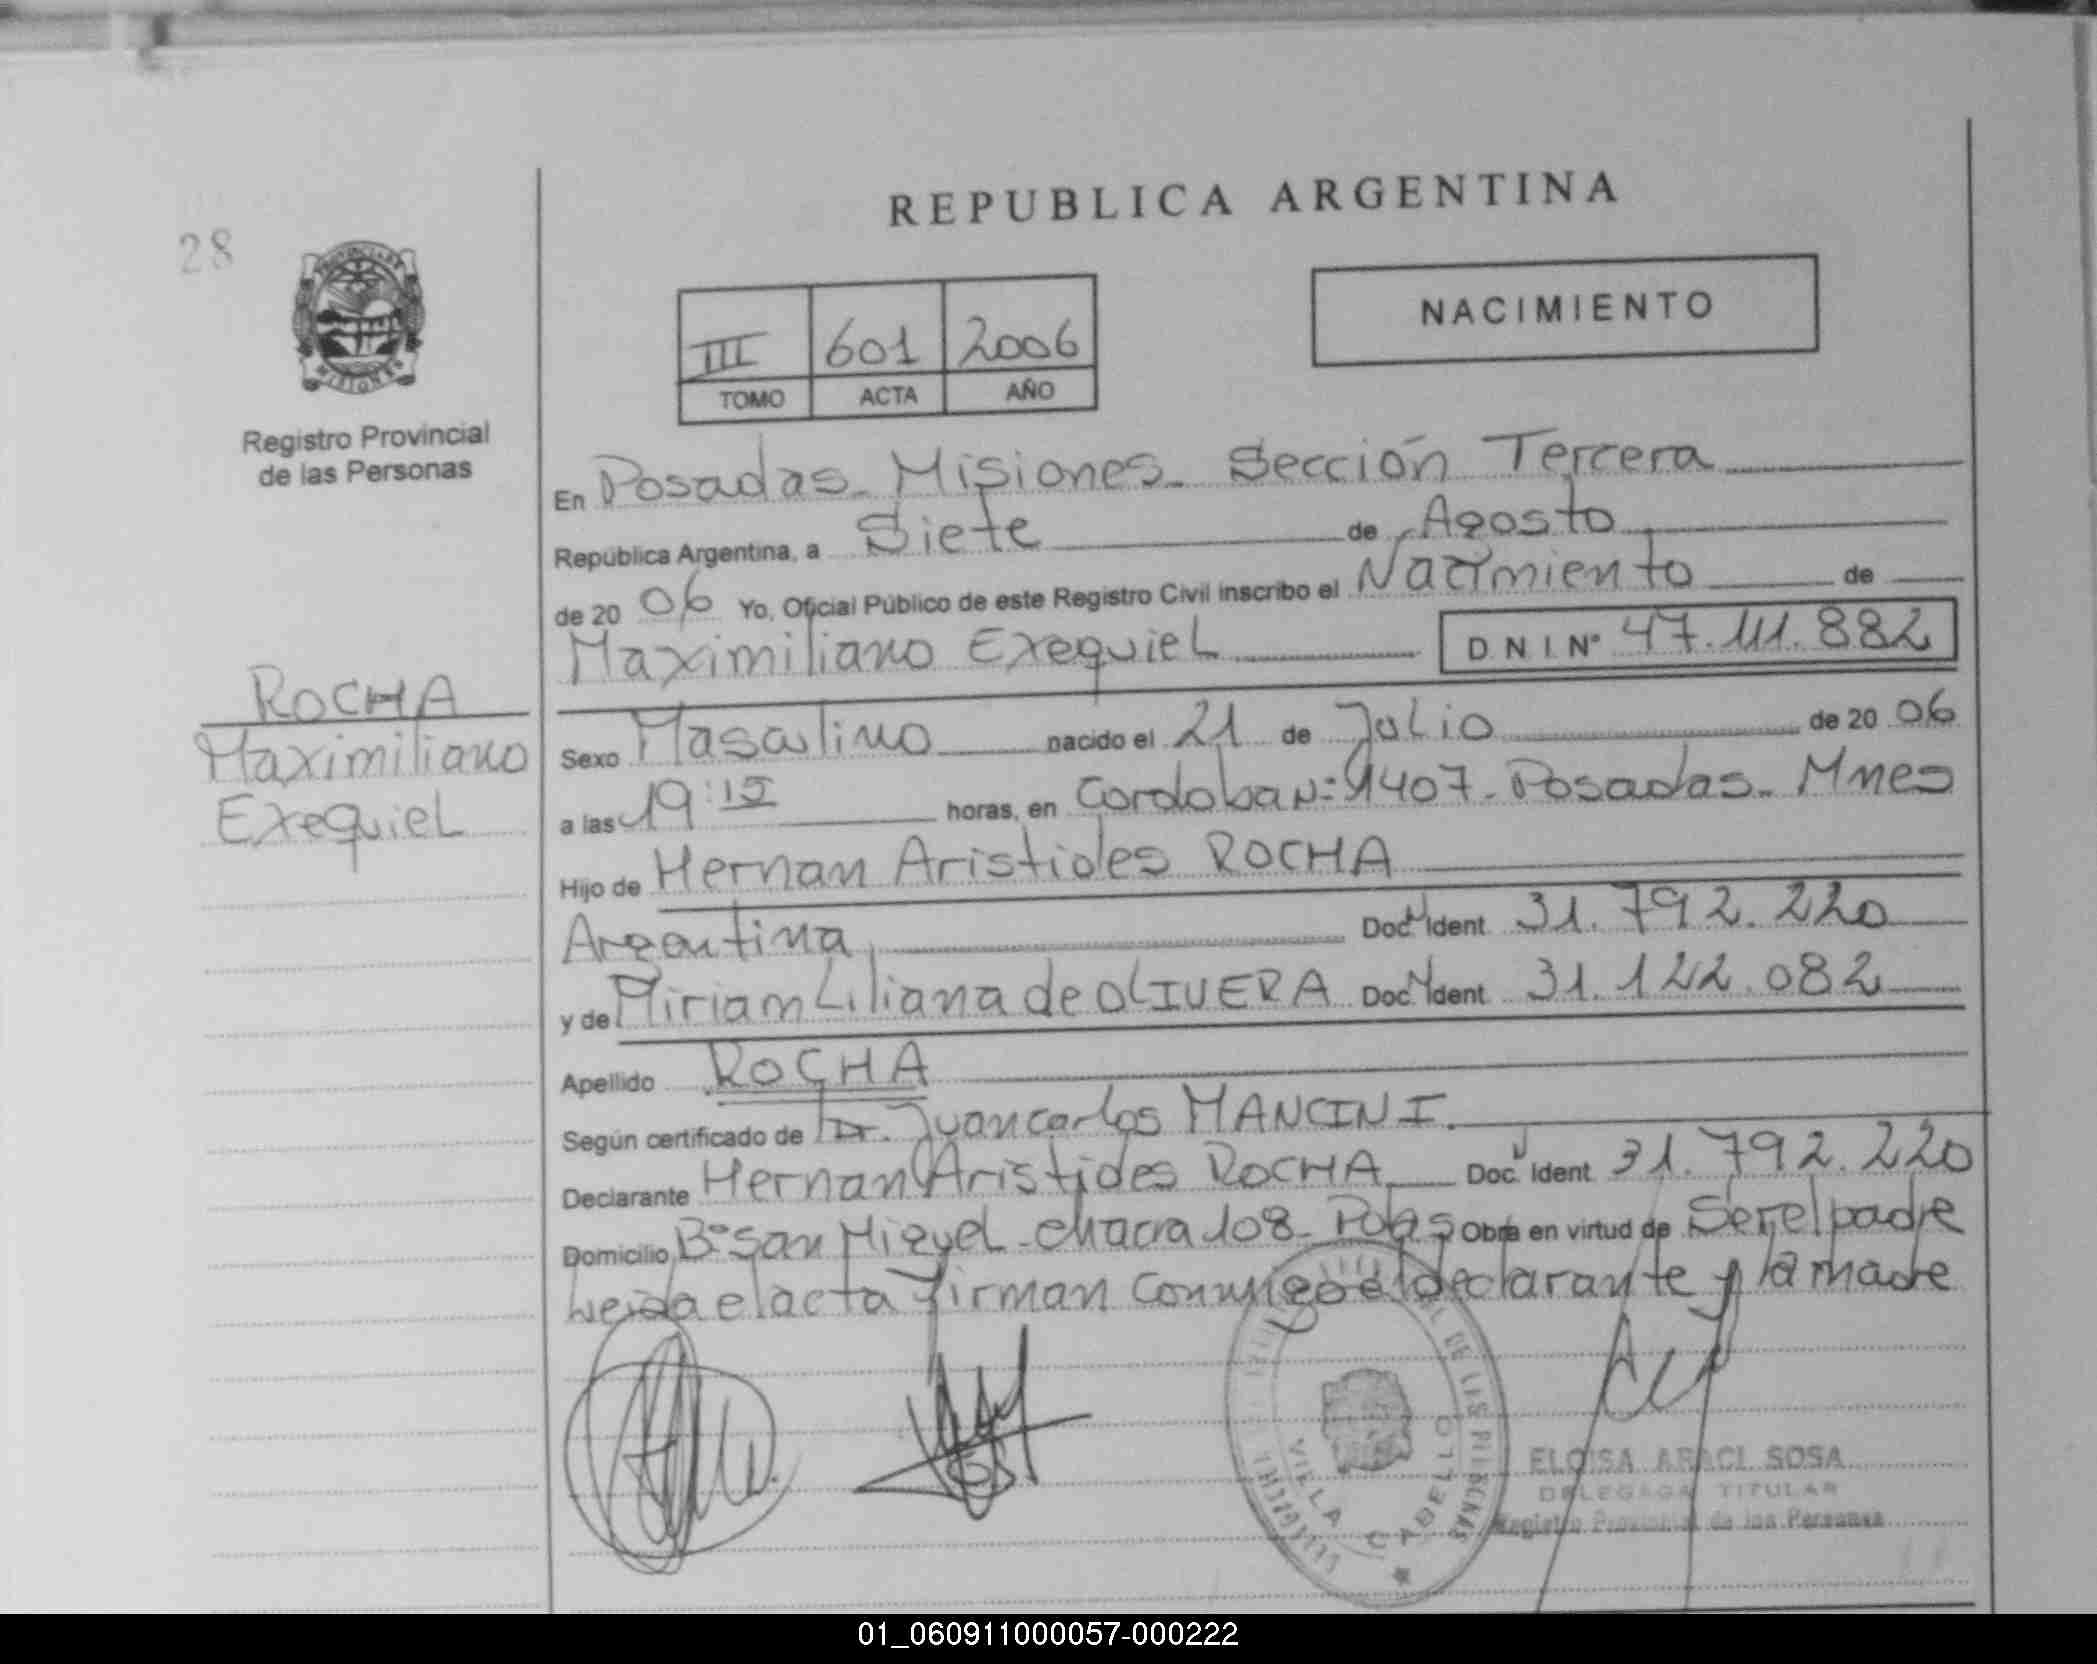 REPUBLICA ARGENTINA
28
PROVINCIA DE
MISIONES
Registro Provincial
de las Personas
NACIMIENTO
III 601 2006
TOMO ACTA AÑO
En Posadas - Misiones - Sección Tercera
República Argentina, a Siete de Agosto
de 20 06 Yo, Oficial Público de este Registro Civil inscribo el Nacimiento de
Maximiliano Exequiel D N I Nº 47.111.882
ROCHA
Maximiliano
Exequiel
Sexo Masculino nacido el 21 de Julio de 20 06
a las 19:15 horas, en Cordoba Nº 1407 - Posadas - Mnes
Hijo de Hernan Aristides ROCHA
Argentina Doc. Ident 31.792.220
y de Miriam Liliana de OLIVERA Doc. Ident 31.122.082
Apellido ROCHA
Según certificado de Dr. Juan Carlos MANCINI.
Declarante Hernan Aristides ROCHA Doc. Ident 31.792.220
Domicilio Bº San Miguel - chacra 108 - Pdas Obra en virtud de Ser el padre
Leida el acta firman conmigo el declarante y la madre
DE LAS PERSONAS
VILLA CABELLO
ELOISA ARACI SOSA
DELEGADA TITULAR
Registro Provincial de las Personas
01_060911000057-000222